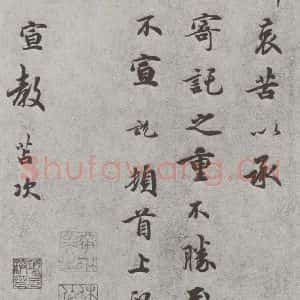 哀苦以承
寄託之重不勝
不宣 說頓首上
宣教 苫次
Shufawang.Cn